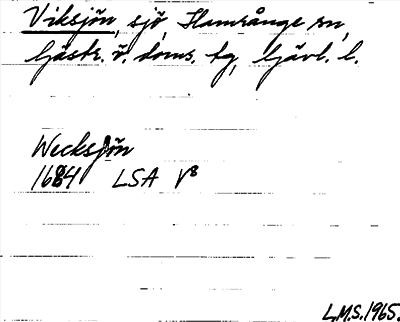 Viksjön, sjö, Hamrånge sn,
Gästr. ö. doms. tg, Gävl. l.
Wecksjön
1684 LSA V8
L.M.S. 1965.